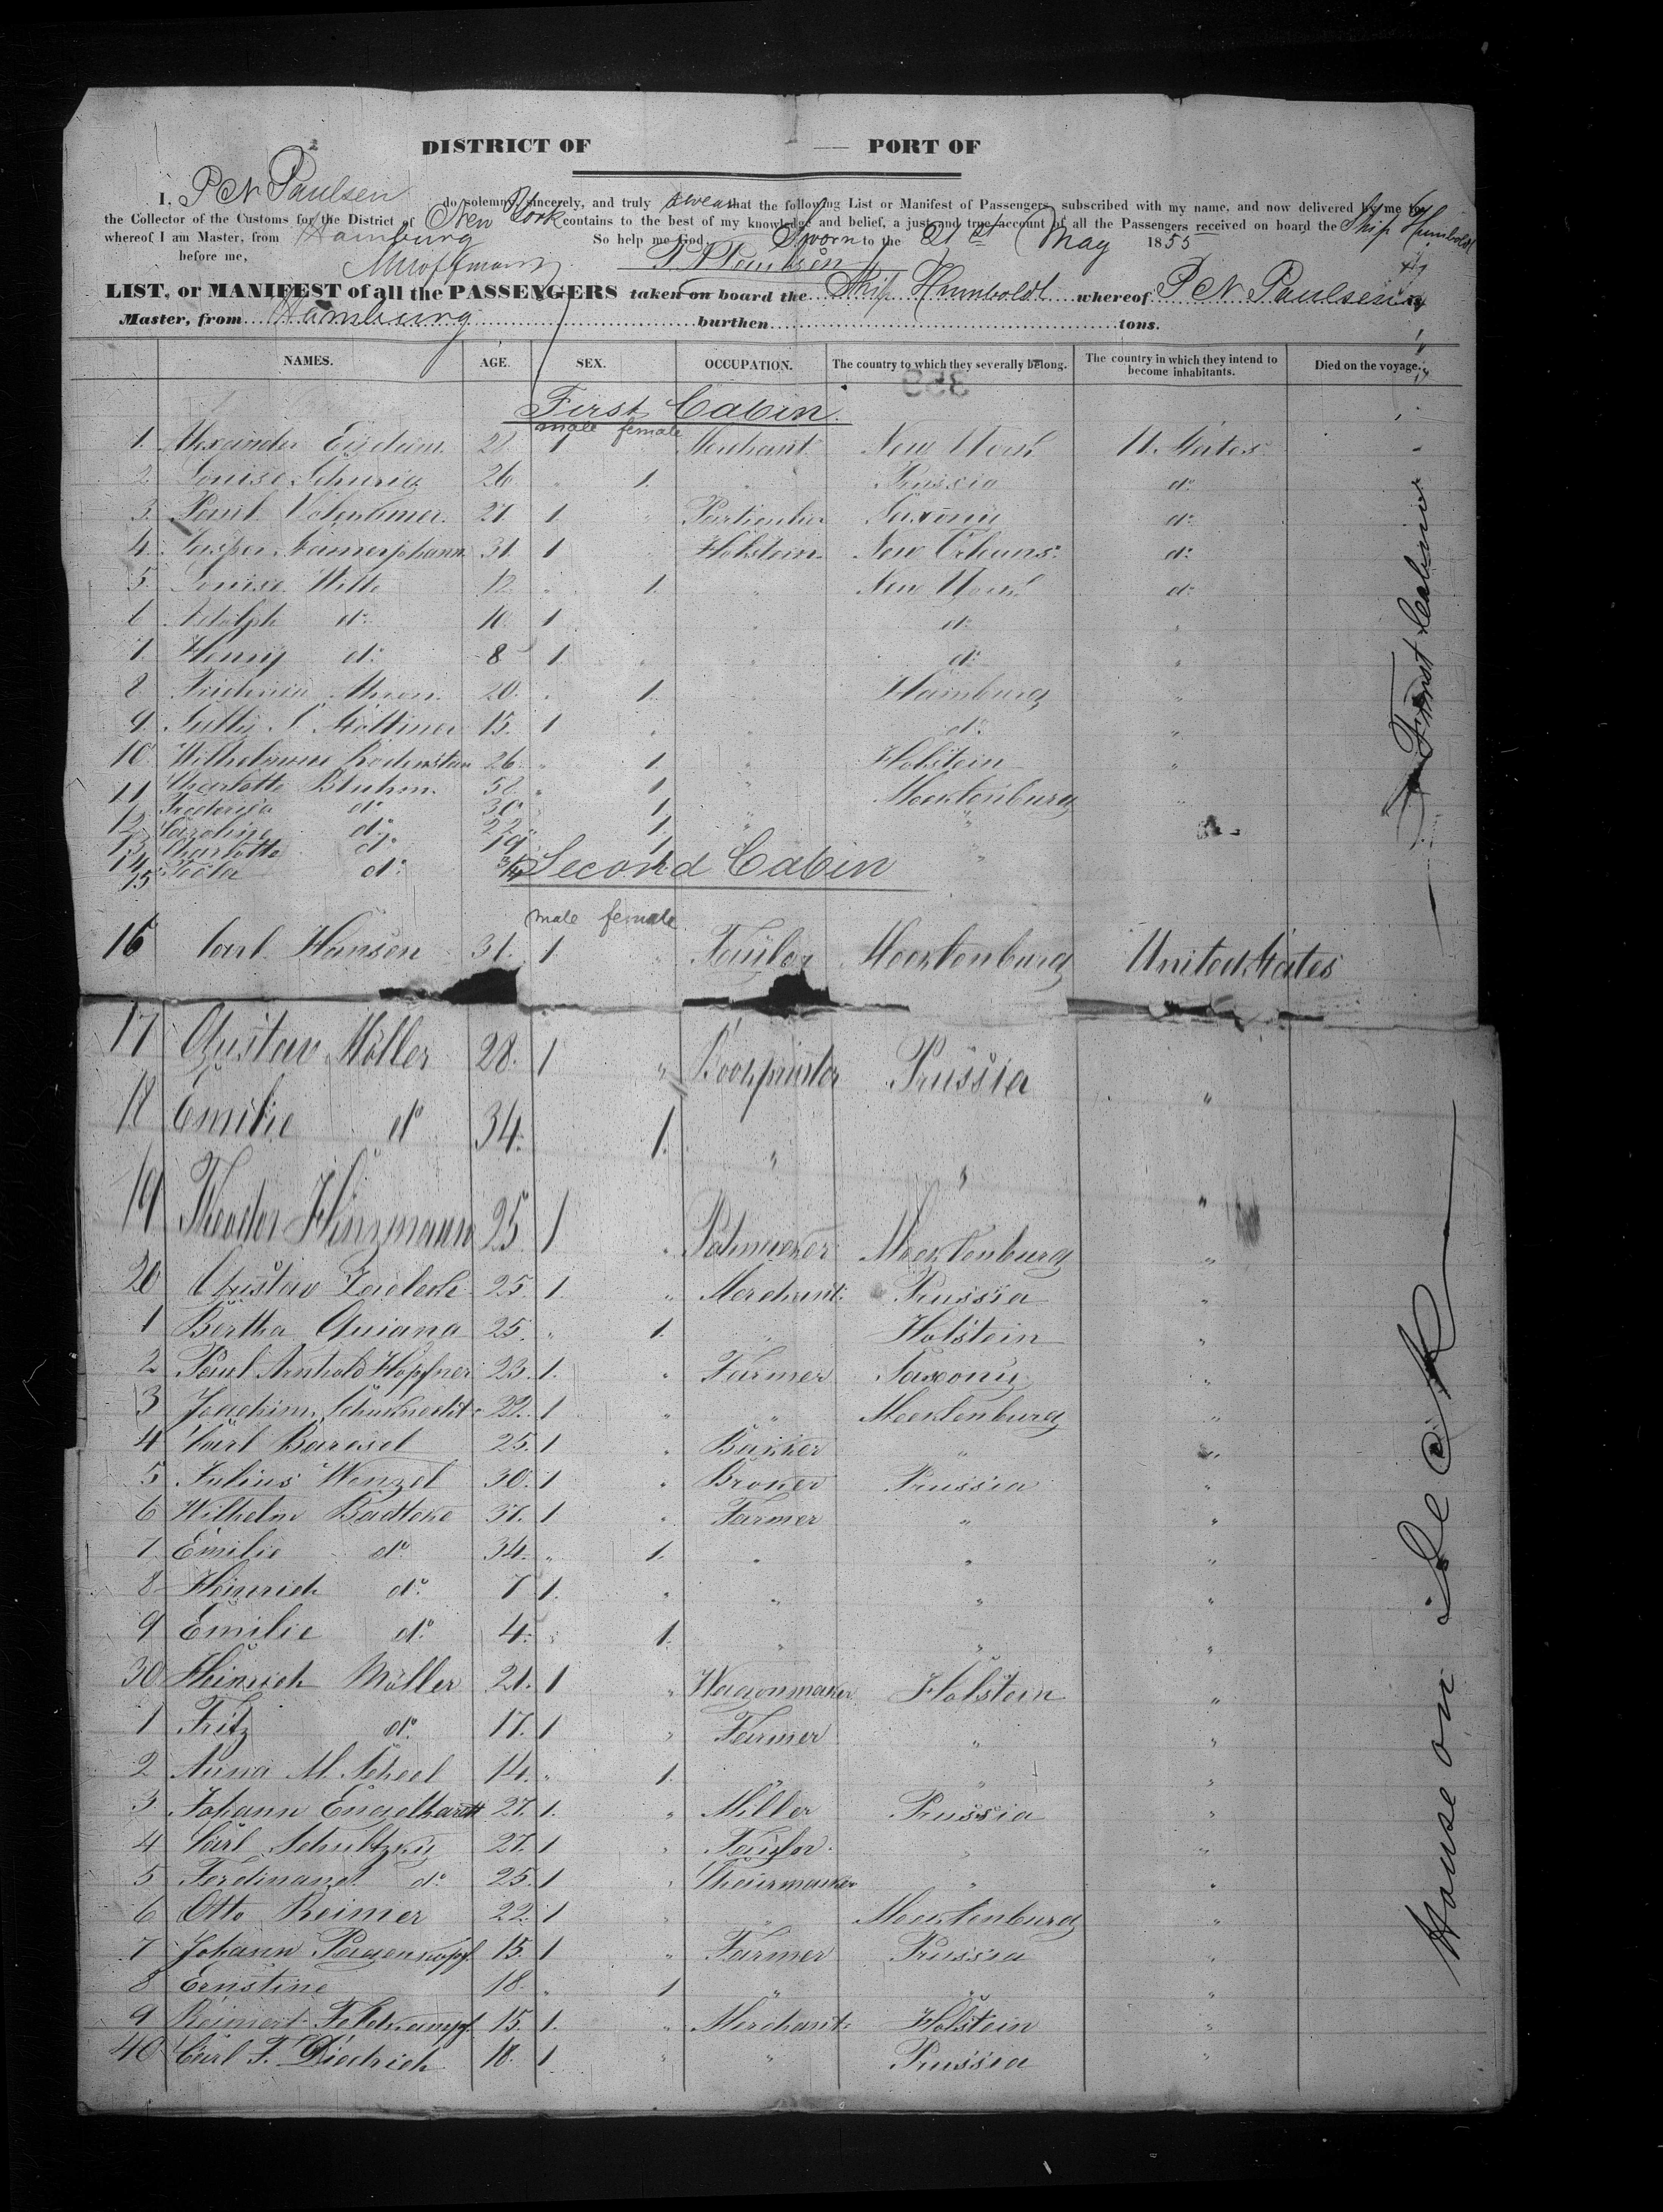 DISTRICT OF — PORT OF
I, P N Paulsen do solemnly, sincerely, and truly swear that the following List or Manifest of Passengers, subscribed with my name, and now delivered by me to
the Collector of the Customs for the District of New York contains to the best of my knowledge and belief, a just and true account of all the Passengers received on board the Ship Humboldt
whereof I am Master, from Hamburg So help me God. Sworn to the 21st May 1855
before me, P N Paulsen
LIST, or MANIFEST of all the PASSENGERS taken on board the Ship Humboldt whereof P N Paulsen is
Master, from Hamburg burthen tons.
NAMES. AGE. SEX. OCCUPATION. The country to which they severally belong. The country in which they intend to become inhabitants. Died on the voyage.
First Cabin
male female
1. Alexander 28 1 Merchant New York U. States
2. Louise Schurig 26 " 1. " Prussia do
3. Paul 27. 1. " Saxony do
4. Jasper 31. 1 Holstein New Orleans do
5. Louise Witte 12. " 1. " New York do
6 Adolph do 10. 1 " do "
7. Henry do 8 1. " " do "
8 20. " 1. " Hamburg "
9. 15. 1 " " do "
10 Wilhelmine 26. " 1. " Holstein "
11 Charlotte Bluhm 58. " 1 " Mecklenburg "
12. Frederica do 30. 1 " "
13. Caroline do 22. 1.
14 Charlotte do 19. 1. "
15 do
Second Cabin
male female
16 Carl Hansen 31. 1. " Taylor Mecklenburg United States
17 Gustav Möller 28. 1 " Bookprinter Prussia "
18 Emilie do 34. 1. " " "
19 Theodor Hinzmann 25 1 " Mecklenburg "
20 Gustav 25. 1. " Merchant Prussia "
1 Bertha Quiana 25. " 1. " Holstein "
2 Paul Arnhold Höpfner 23. 1. " Farmer Saxony "
3 Joachim Schuknecht 22. 1 " " Mecklenburg "
4 Carl Baresel 25. 1 " Backer " "
5 Julius Wenzel 30. 1 " Broker Prussia "
6 Wilhelm Badtcke 37. 1 " Farmer " "
7. Emilie do 34. " 1. " " "
8 Heinrich do 7 1. " " " "
9 Emilie do 4. " 1. " " "
30 Heinrich Möller 21. 1 " Wagonmaker Holstein "
1 Fritz do 17. 1 " Farmer " "
2 Anna M. Scheel 14. " 1. " "
3 Johann Engelhardt 27. 1. " Miller Prussia "
4 Carl Schultzky 27. 1 " Taylor " "
5 Ferdinand do 25. 1 " " "
6 Otto Reimer 22. 1 " " Mecklenburg "
7 Johann Pagenkopf 15. 1 " Farmer Prussia "
8 Ernstine 18. " 1 " " "
9 Reimert Feldkampf 15. 1. " Merchant Holstein "
40 Carl F. Diedrich 18. 1 " " Prussia "
First Cabin
House on Deck